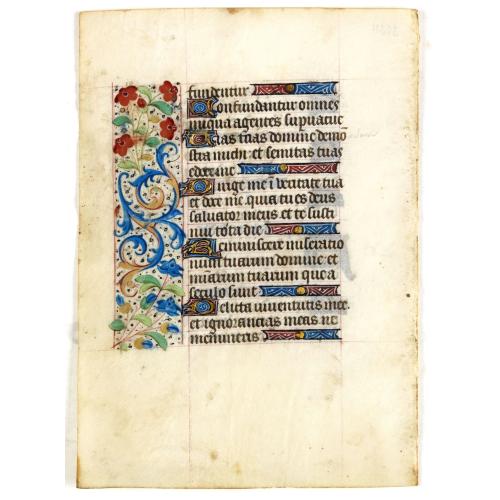 fundentur
Confundantur omnes
iniqua agentes supvacue
Vias tuas domine demō
stra michi: et semitas tuas
edoce me
Dirige me ī veritate tua
et doce me. quia tu es deus
saluator meus et te susti
nui tota die
Reminiscere miseratio
num tuarum domine: et
mīarum tuarum que a
seculo sunt
Delicta iuuentutis mee.
et ignorancias meas ne
memineris